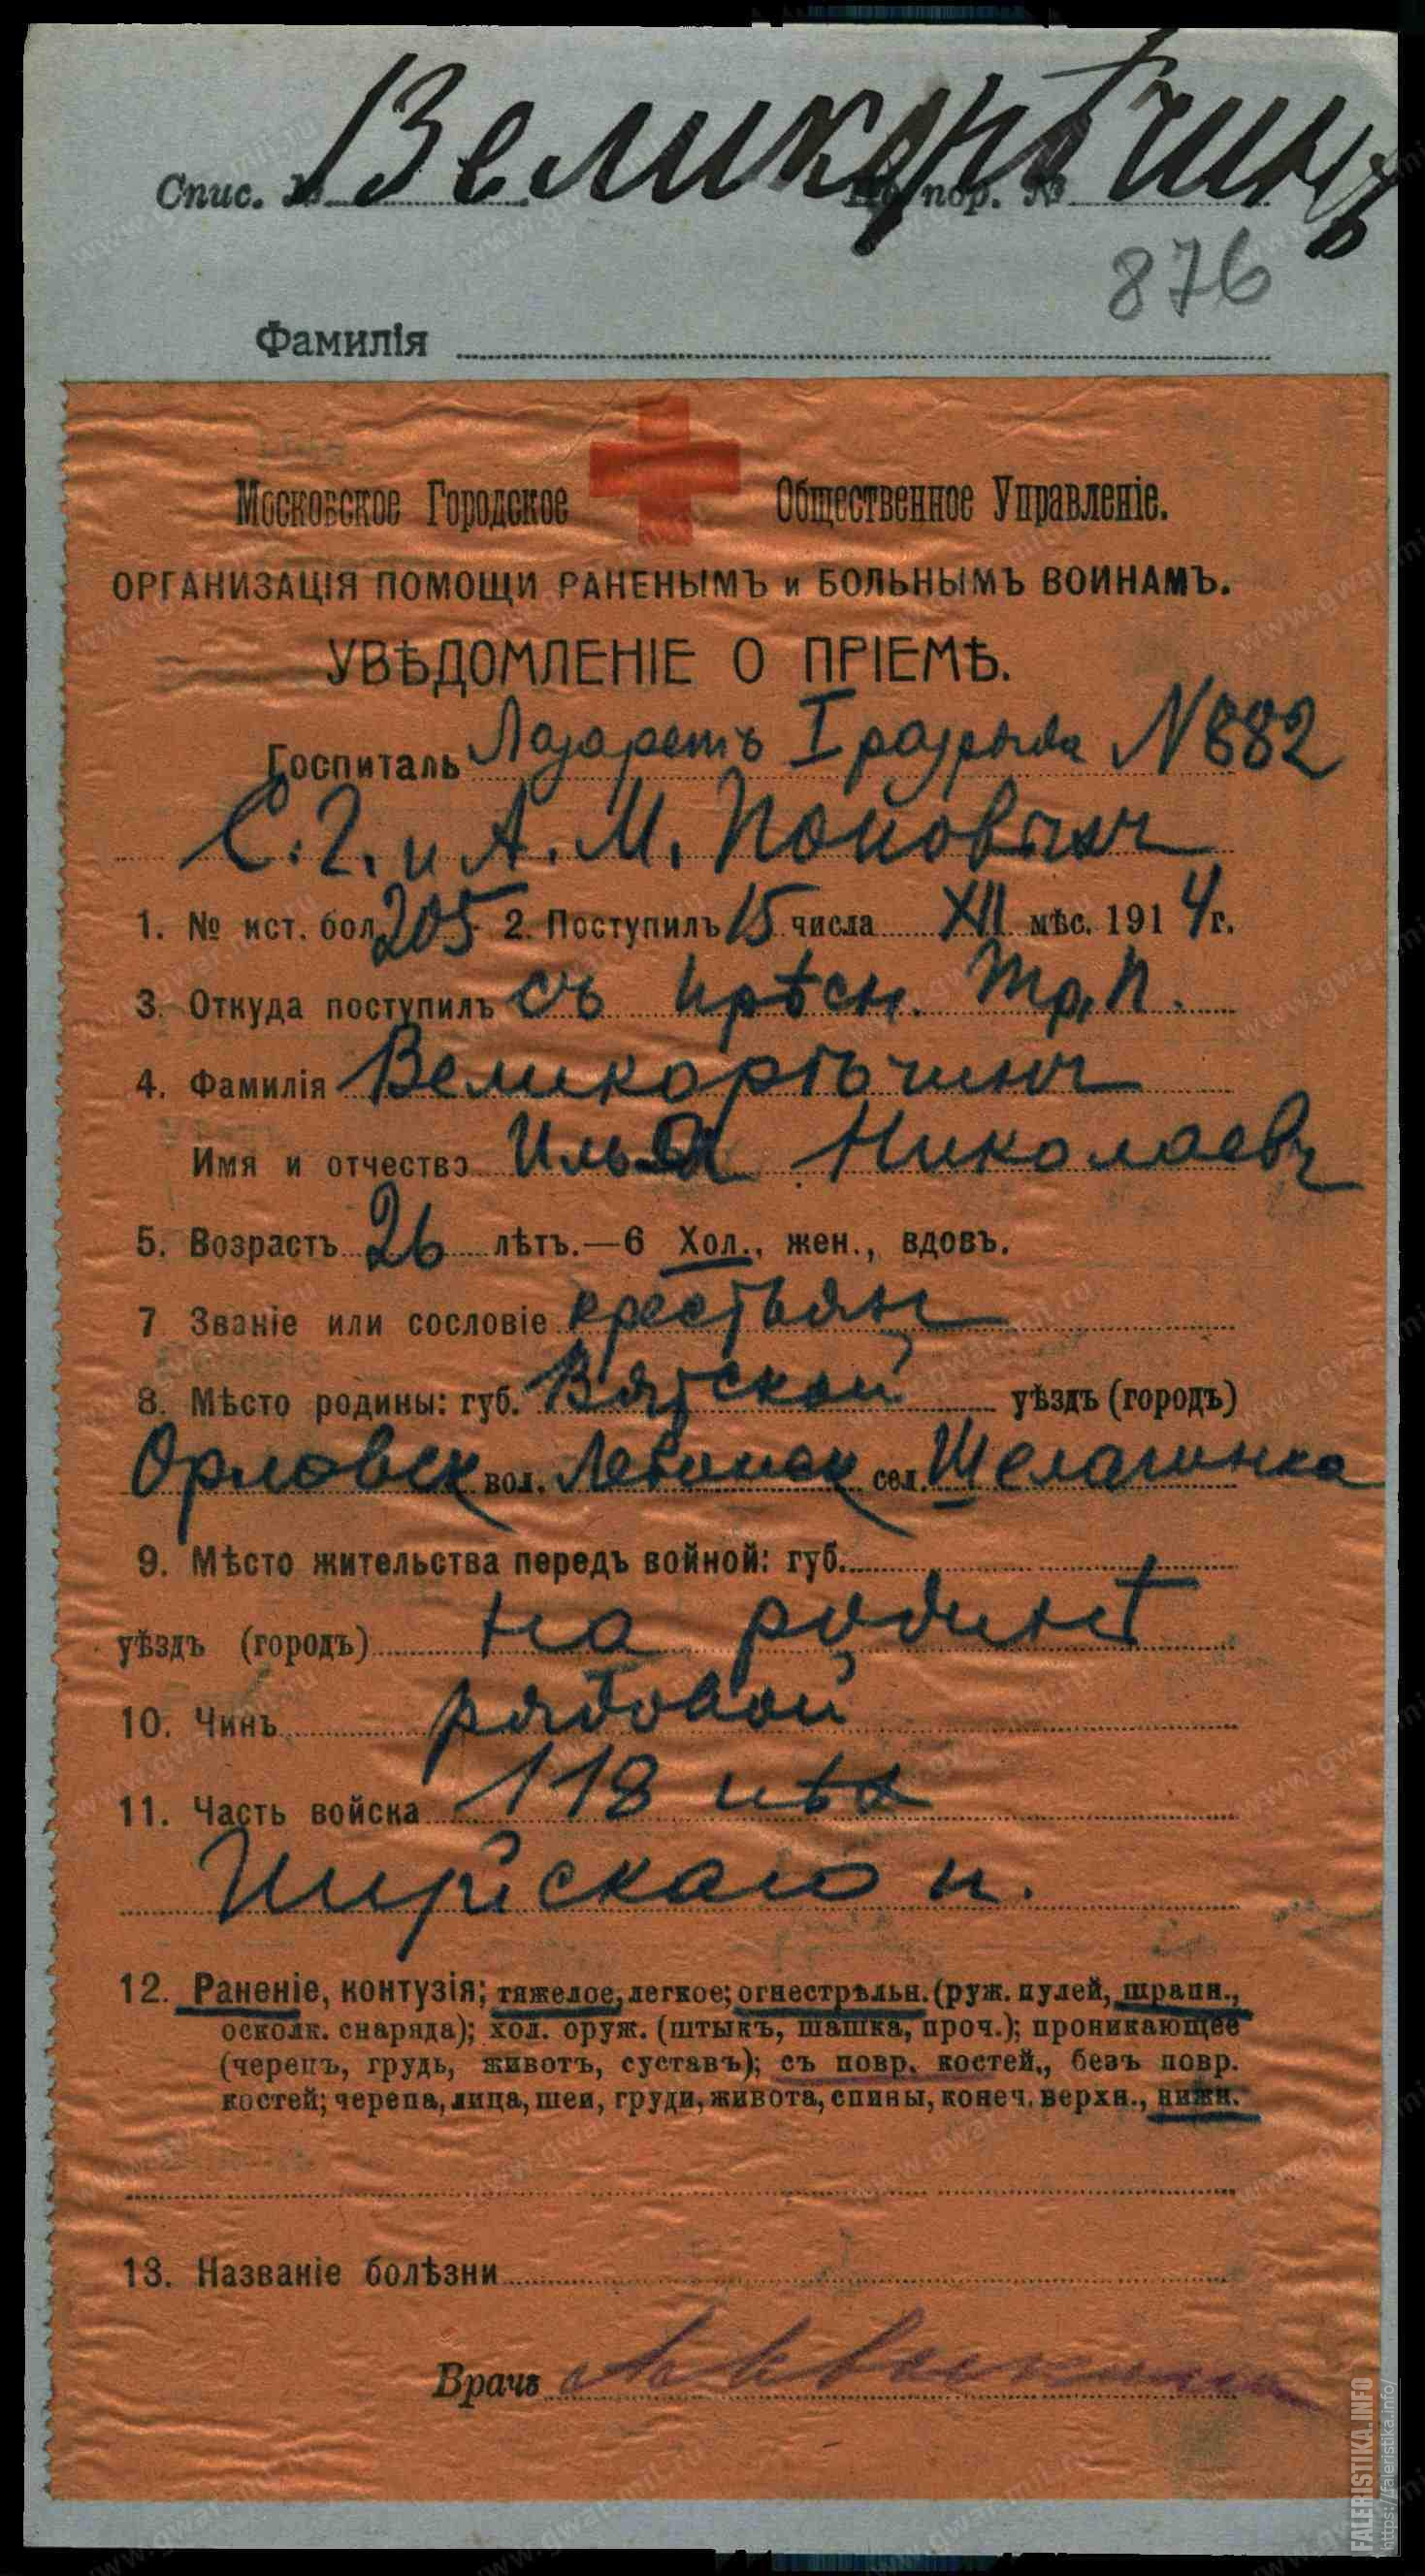 Великорѣчинъ
Спис. № По пор. №
876
Фамилія
Московское Городское Общественное Управленіе.
ОРГАНИЗАЦІЯ ПОМОЩИ РАНЕНЫМЪ и БОЛЬНЫМЪ ВОИНАМЪ.
УВѢДОМЛЕНІЕ О ПРІЕМѢ.
Госпиталь Лазаретъ I разряда № 882
С. Г. и А. М. Поповыхъ
1. № ист. бол. 205 2. Поступилъ 15 числа XII мѣс. 1914 г.
3. Откуда поступилъ съ Прѣсн.
4. Фамилія Великорѣчинъ
Имя и отчество Илья Николаевъ
5. Возрастъ 26 лѣтъ.—6 Хол., жен., вдовъ.
7 Званіе или сословіе крестьян
8. Мѣсто родины: губ. Вятской уѣздъ (городъ)
Орловск вол. сел. Шелагинка
9. Мѣсто жительства передъ войной: губ.
уѣздъ (городъ) на родинѣ
10. Чинъ рядовой
11. Часть войска 118 пѣх
Шуйскаго п.
12. Раненіе, контузія; тяжелое, легкое; огнестрѣльн. (руж. пулей, шрапн.,
осколк. снаряда); хол. оруж. (штыкъ, шашка, проч.); проникающее
(черепъ, грудь, животъ, суставъ); съ повр. костей., безъ повр.
костей; черепа, лица, шеи, груди, живота, спины, конеч. верхн., нижн.
13. Названіе болѣзни
Врачъ
FALERISTIKA.INFO
https://faleristika.info/
www.gwar.mil.ru